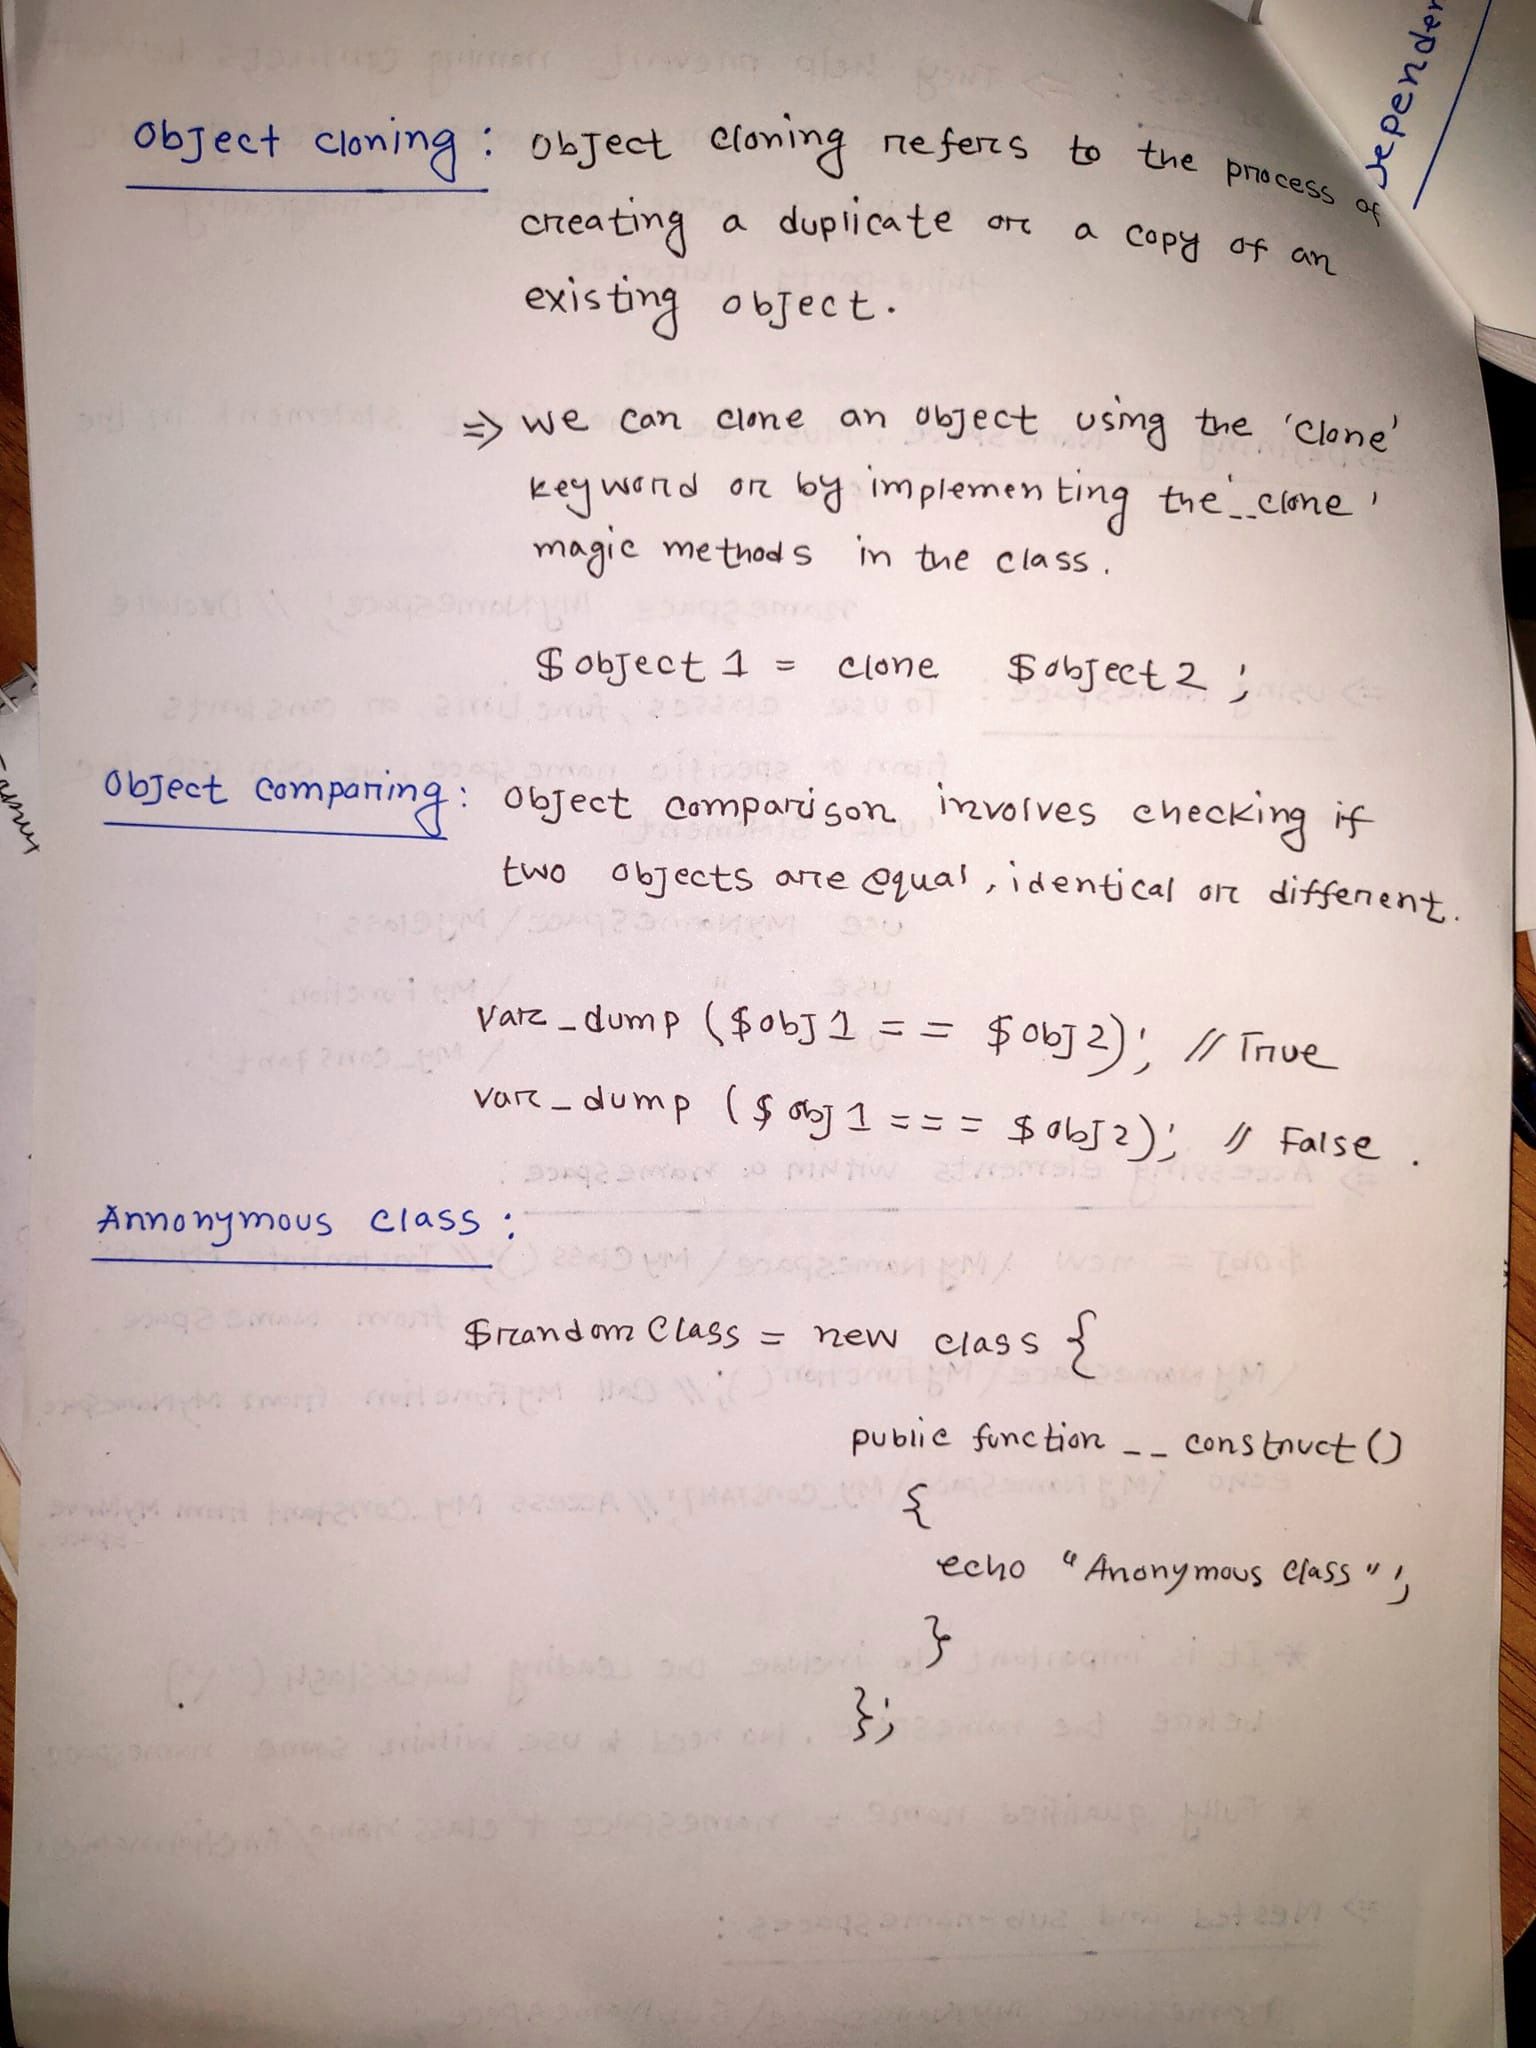 Object cloning : Object cloning refers to the process of
creating a duplicate or a copy of an
existing object.
=> we can clone an object using the 'clone'
keyword or by implementing the '__clone'
magic methods in the class.
$object1 = clone $object2 ;
Object comparing : Object comparison involves checking if
two objects are equal, identical or different.
var_dump ($obj1 == $obj2); // True
var_dump ($obj1 === $obj2); // False .
Annonymous class :
$randomClass = new class {
public function __construct()
{
echo "Anonymous class";
}
};